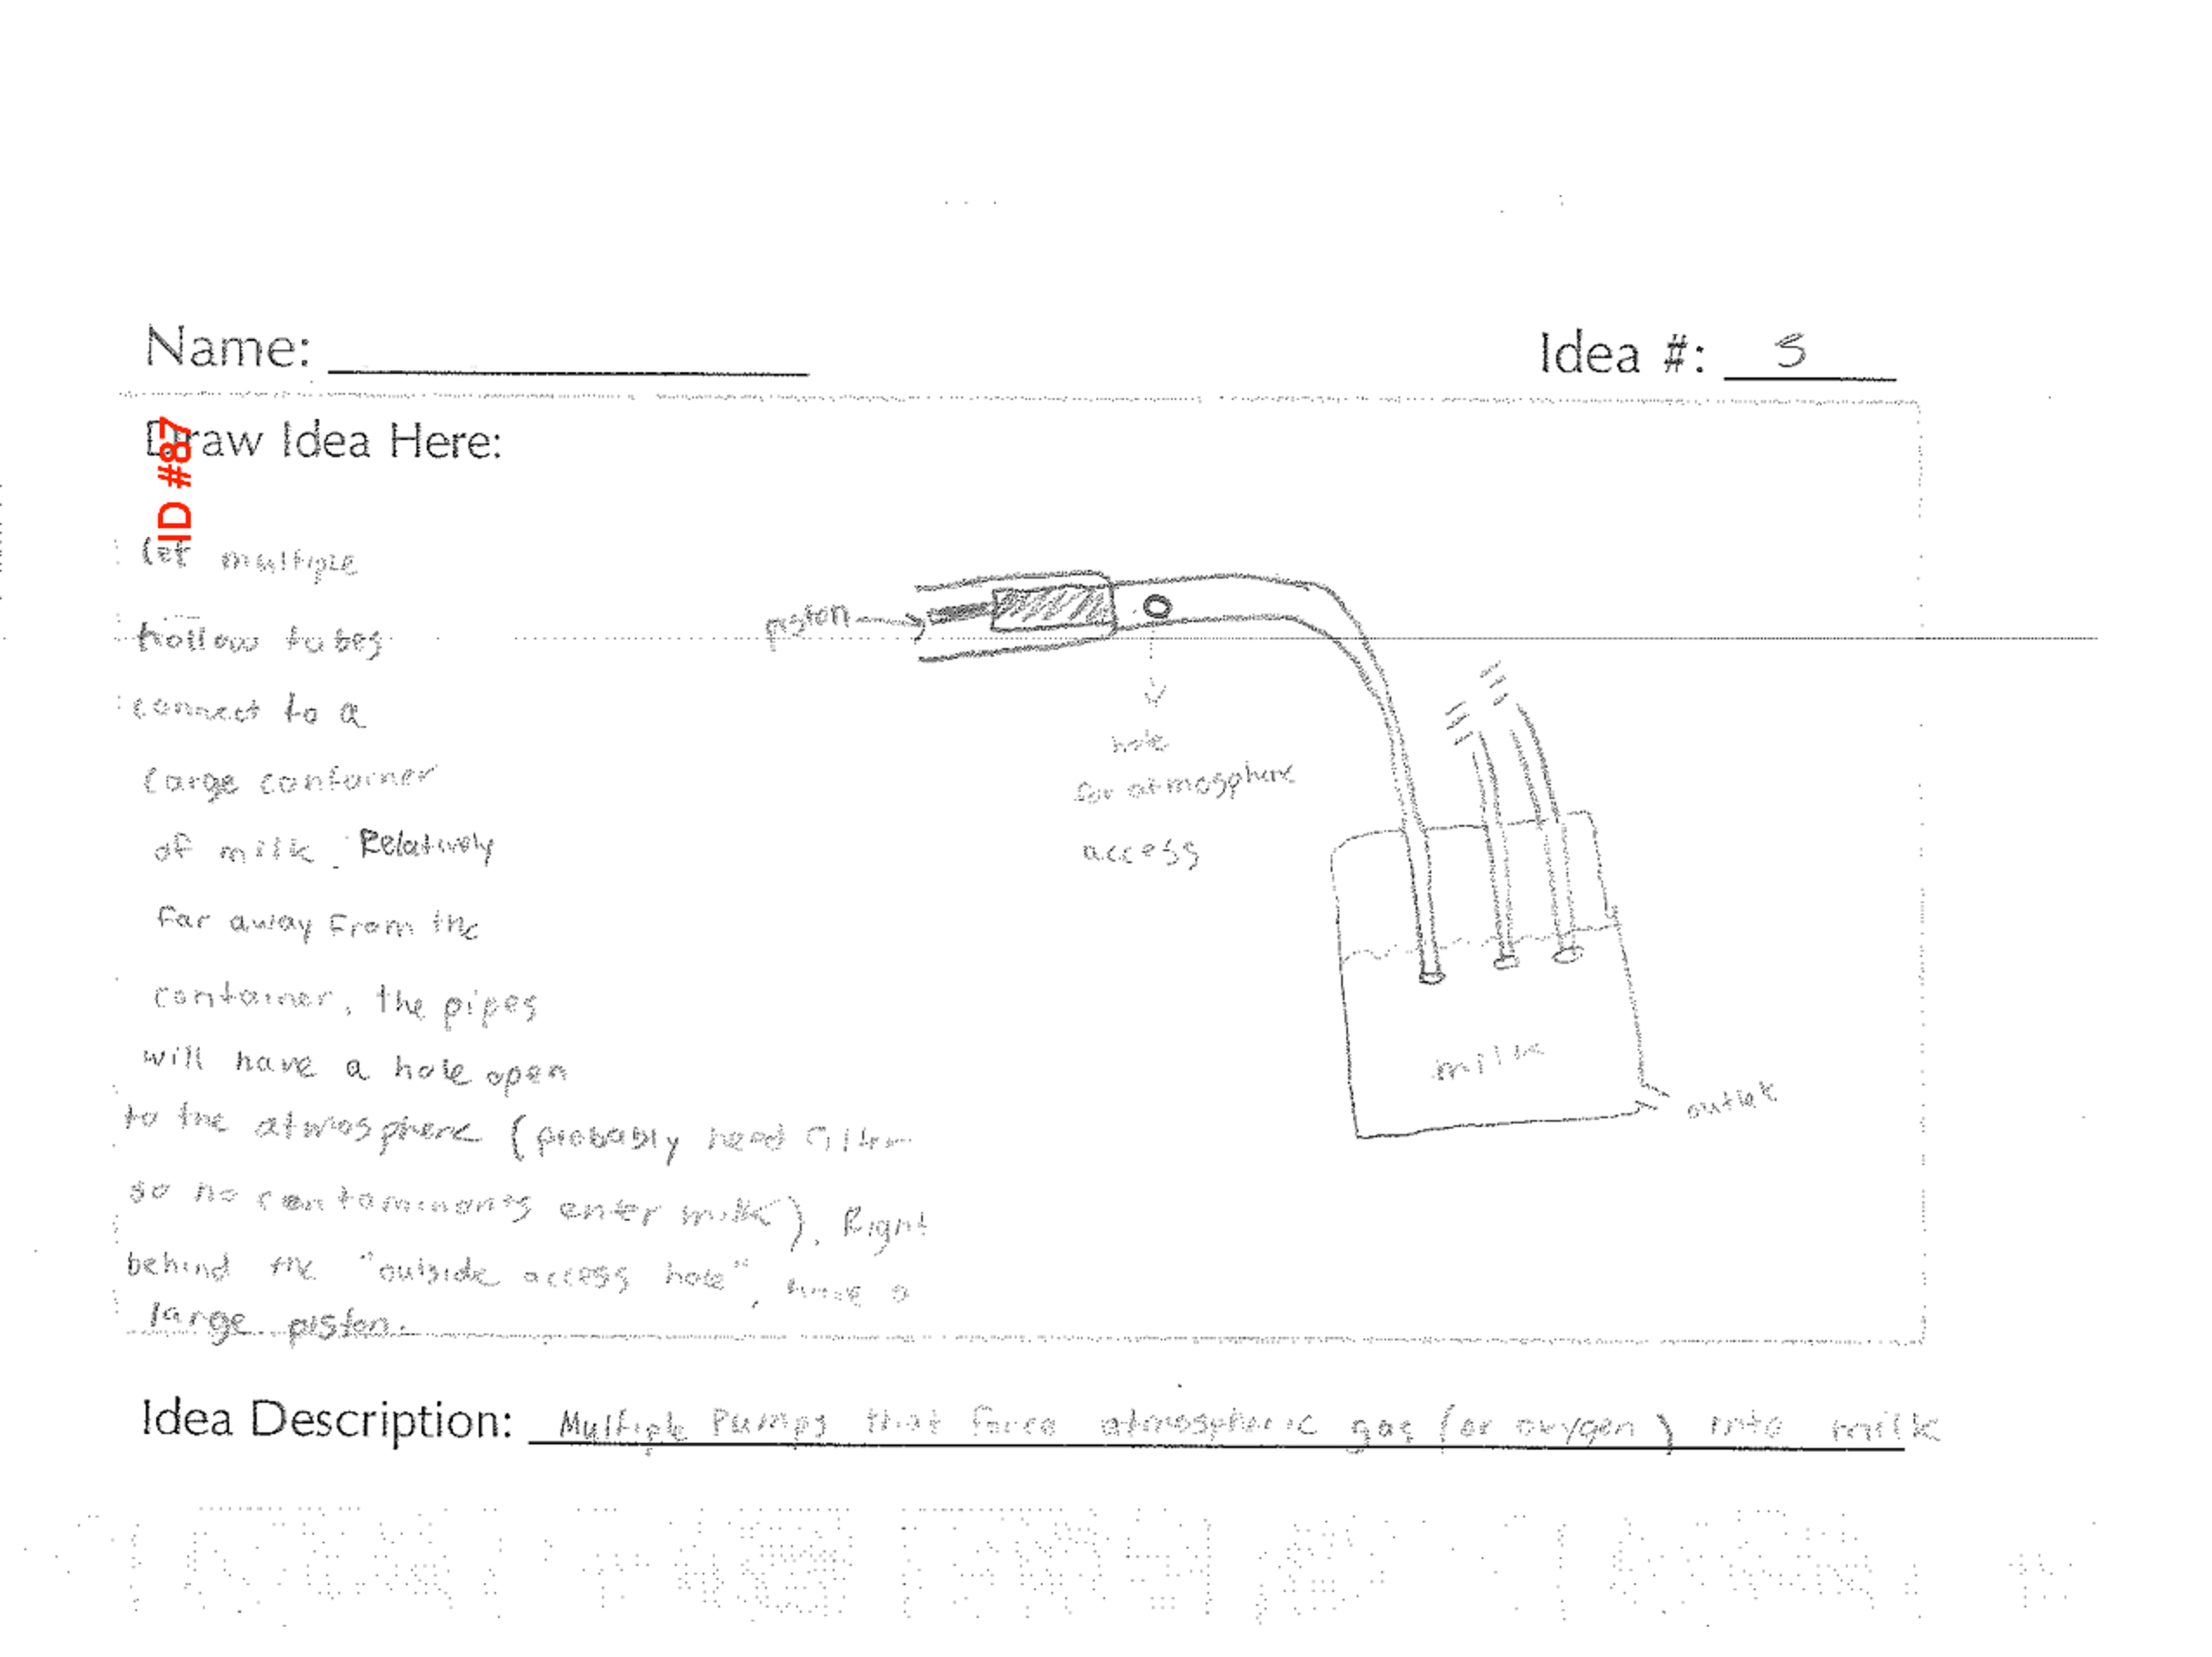 Name:
Idea #: 5
Draw Idea Here:
ID #87
let multiple
hollow tubes
connect to a
large container
of milk. Relatively
far away from the
container, the pipes
will have a hole open
to the atmosphere (probably need filter
so no contaminants enter milk). Right
behind the "outside access hole", have a
large piston.
piston
hole
for atmosphere
access
milk
outlet
Idea Description: Multiple Pumps that force atmospheric gas (or oxygen) into milk